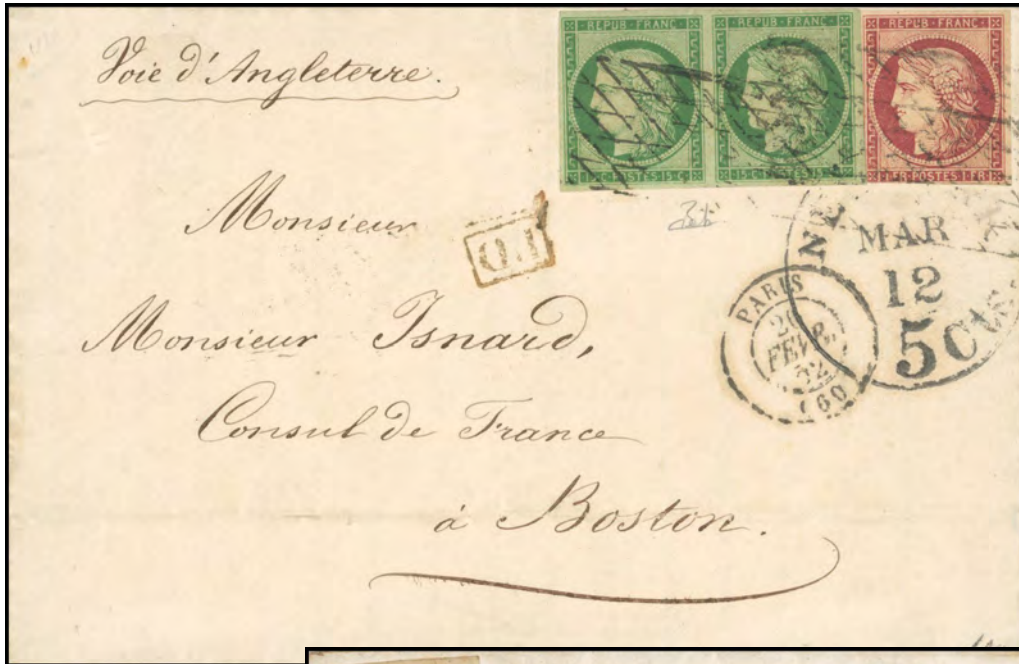 Voie d'Angleterre.
REPUB·FRANC·
REPUB·FRANC·
REPUB·FRANC·
15·C·POSTES·15·C·
15·C·POSTES·15·C·
1·FR·POSTES·1·FR·
Monsieur
P.D.
MAR
12
5Cts
PARIS
FEVR.
52
(60)
Monsieur Isnard,
Consul de France
à Boston.